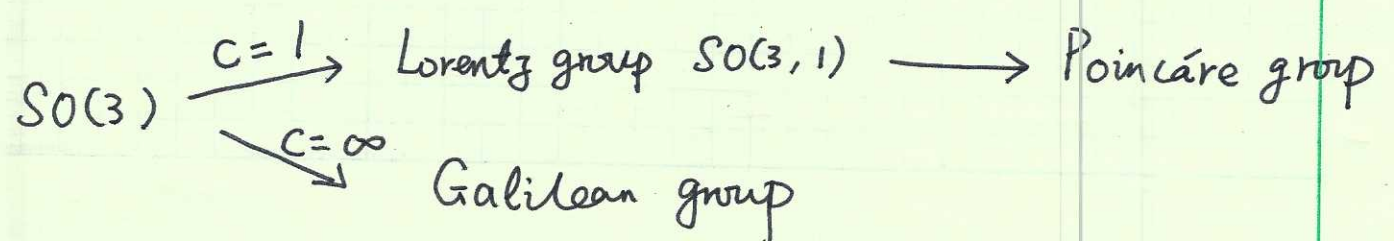 SO(3) c=1 → Lorentz group SO(3,1) → Poincáre group
c=∞ → Galilean group